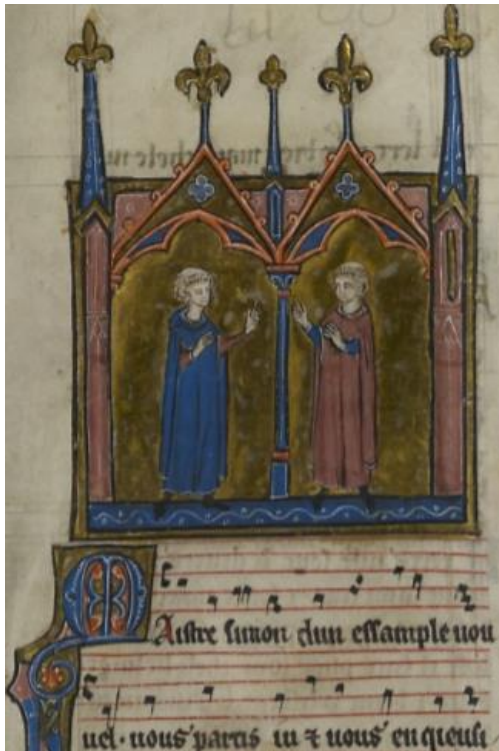 MAistre simon dun essample nou
uel · uous partis iu ⁊ uous en